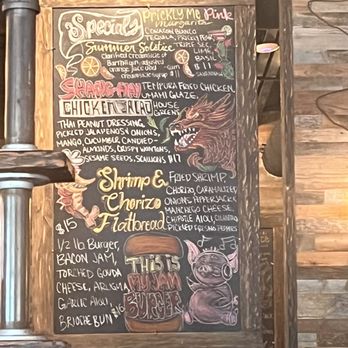 Specialty
Prickly Me Pink
Margarita
Corazon Blanco
Tequila, Prickly Pear,
Triple Sec,
Lime
Basil
$11
Summer Solstice
adjusted
orange juice
creamsicle syrup $11
Shanghai
Chicken Salad
Tempura Fried Chicken,
Umami Glaze,
House
Greens
Thai Peanut Dressing,
Pickled Jalapenos & Onions,
Mango, Cucumber, Candied
Almonds, Crispy Wontons,
Sesame Seeds, Scallions $17
Shrimp &
Chorizo
Flatbread
$15
Fried Shrimp,
Chorizo, Caramelized
Onions, Pepperjack &
Manchego Cheese,
Chipotle Aioli, Cilantro
Pickled Fresno Peppers
1/2 lb Burger,
Bacon Jam,
Torched Gouda
Cheese, Arugula
Garlic Aioli,
Brioche Bun
$16
This is
my Jam
Burger